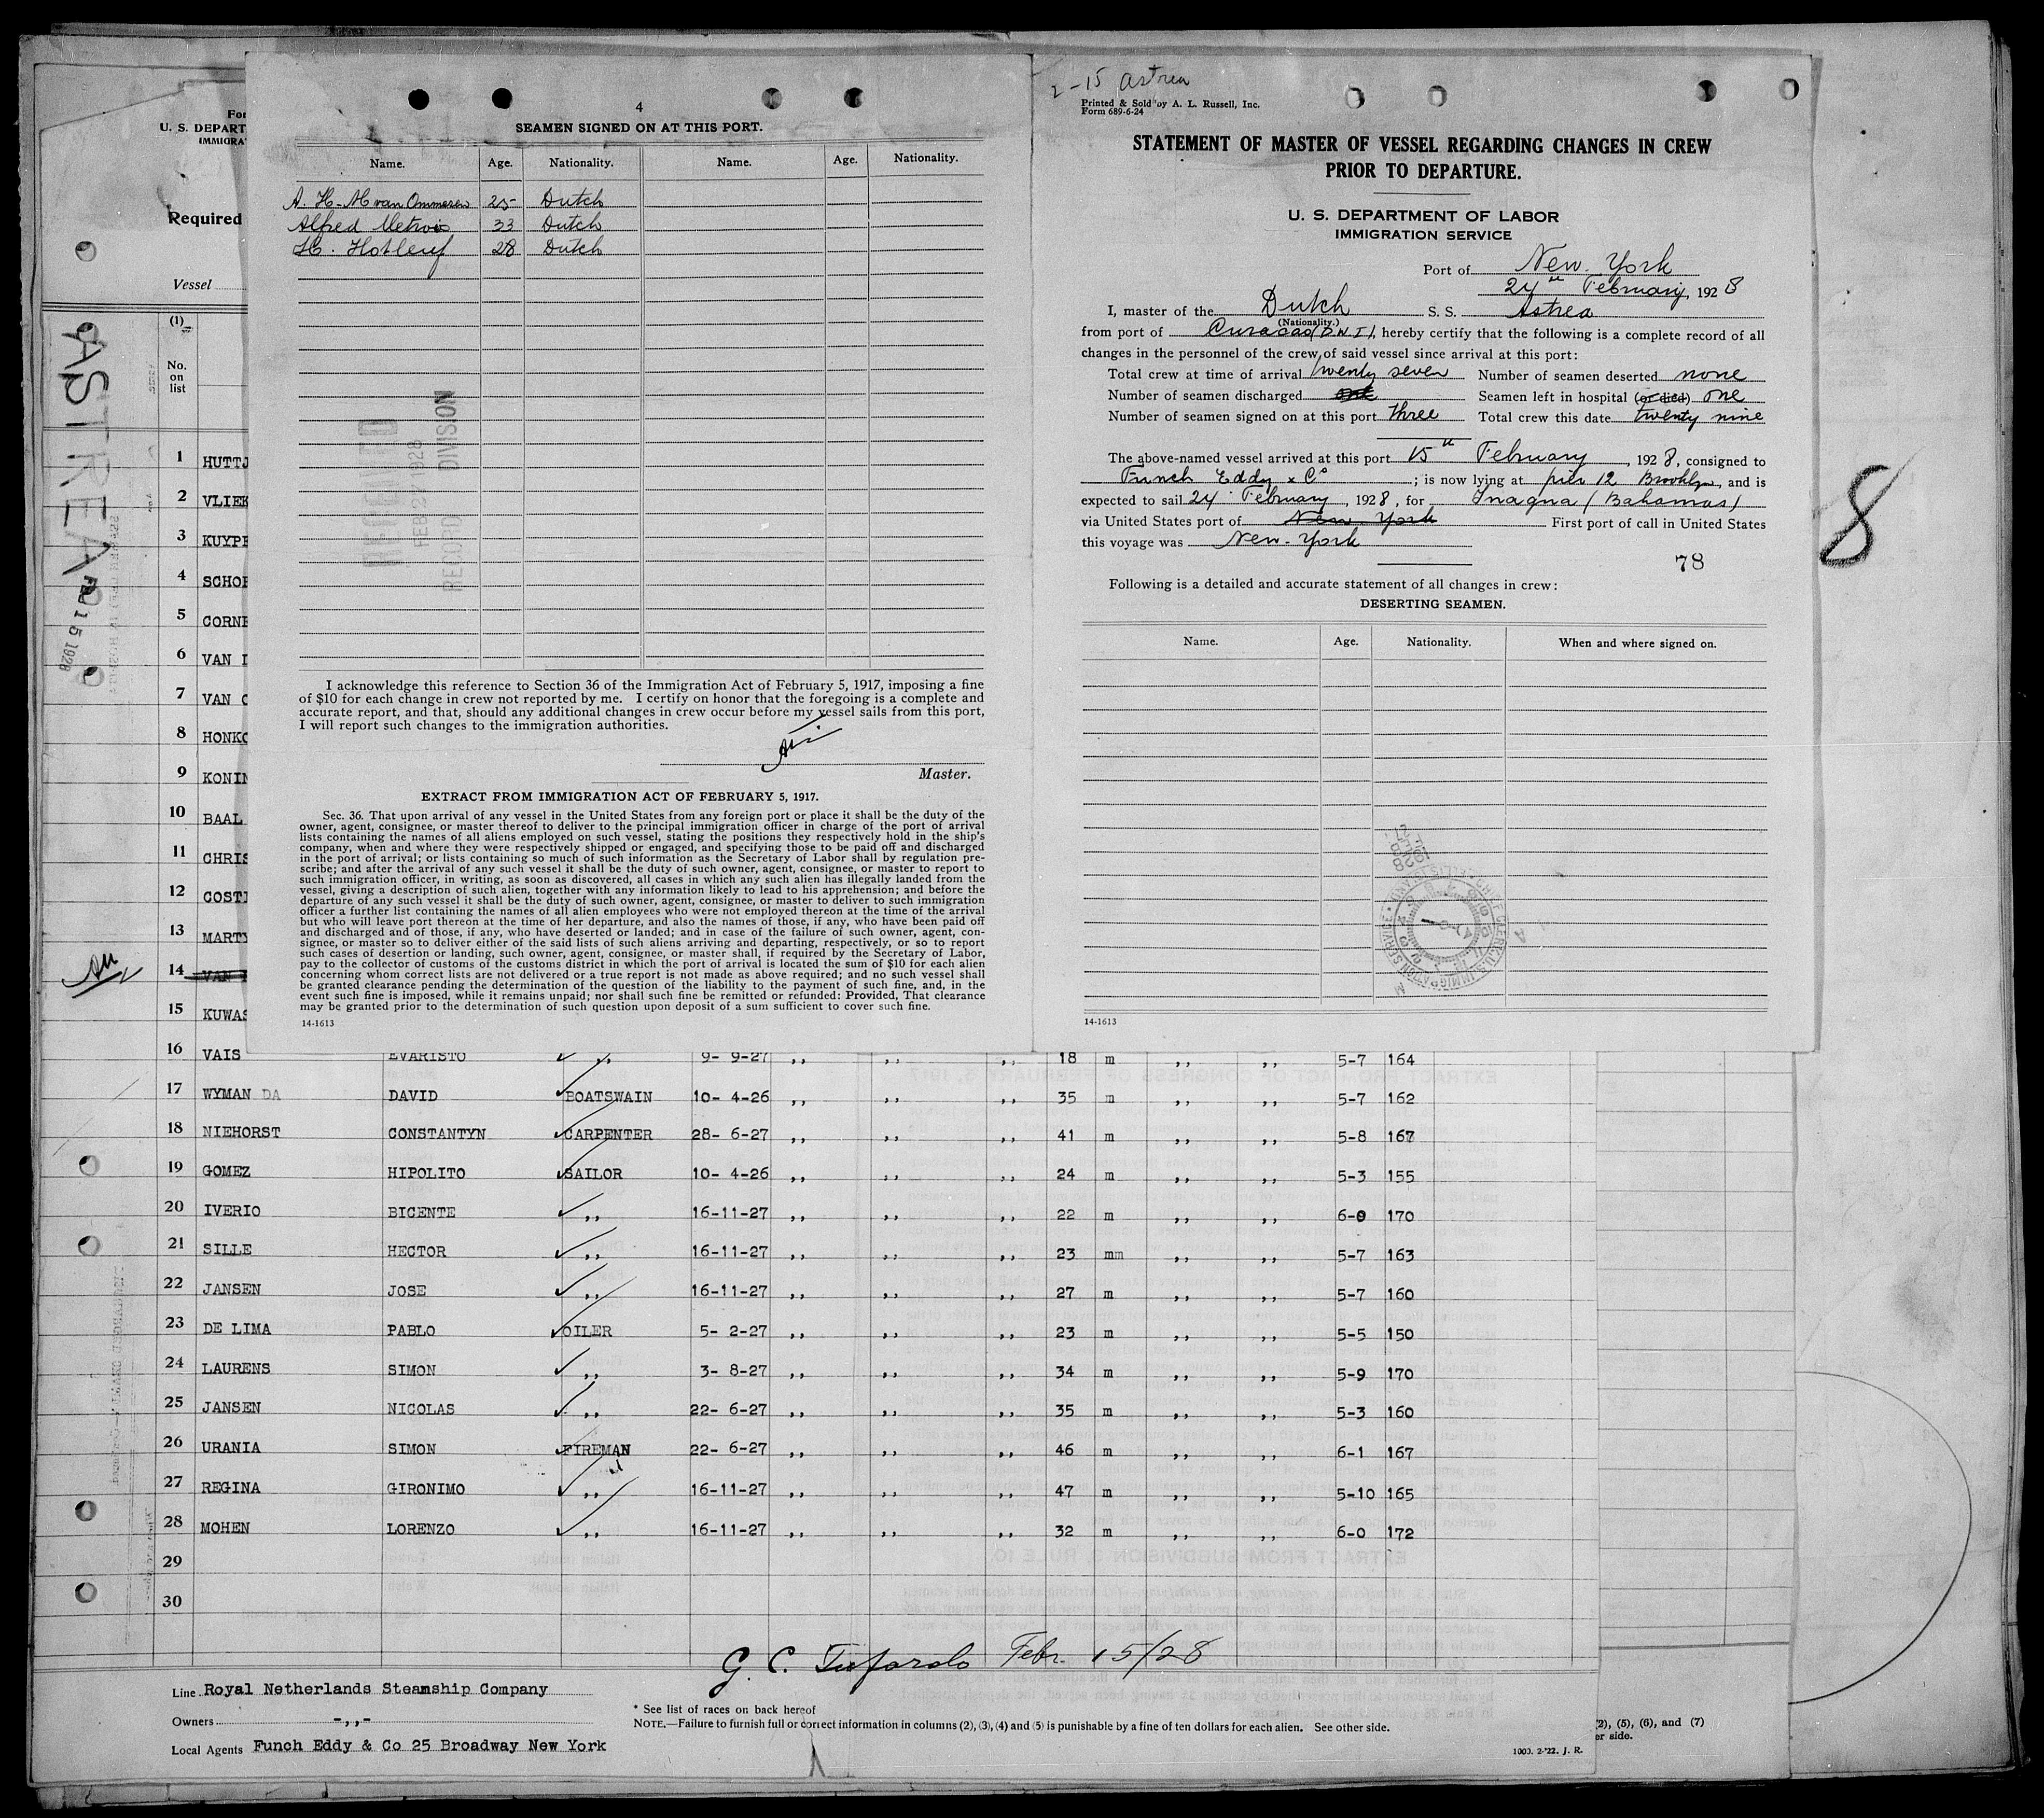 4
SEAMEN SIGNED ON AT THIS PORT.
Name. Age. Nationality. Name. Age. Nationality.
A. H. M van Ommeren 25 Dutch
Alfred 33 Dutch
H. 28 Dutch
RECEIVED
FEB 24 1928
RECORD DIVISION
I acknowledge this reference to Section 36 of the Immigration Act of February 5, 1917, imposing a fine
of $10 for each change in crew not reported by me. I certify on honor that the foregoing is a complete and
accurate report, and that, should any additional changes in crew occur before my vessel sails from this port,
I will report such changes to the immigration authorities.
Master.
EXTRACT FROM IMMIGRATION ACT OF FEBRUARY 5, 1917.
Sec. 36. That upon arrival of any vessel in the United States from any foreign port or place it shall be the duty of the
owner, agent, consignee, or master thereof to deliver to the principal immigration officer in charge of the port of arrival
lists containing the names of all aliens employed on such vessel, stating the positions they respectively hold in the ship's
company, when and where they were respectively shipped or engaged, and specifying those to be paid off and discharged
in the port of arrival; or lists containing so much of such information as the Secretary of Labor shall by regulation pre-
scribe; and after the arrival of any such vessel it shall be the duty of such owner, agent, consignee, or master to report to
such immigration officer, in writing, as soon as discovered, all cases in which any such alien has illegally landed from the
vessel, giving a description of such alien, together with any information likely to lead to his apprehension; and before the
departure of any such vessel it shall be the duty of such owner, agent, consignee, or master to deliver to such immigration
officer a further list containing the names of all alien employees who were not employed thereon at the time of the arrival
but who will leave port thereon at the time of her departure, and also the names of those, if any, who have been paid off
and discharged and of those, if any, who have deserted or landed; and in case of the failure of such owner, agent, con-
signee, or master so to deliver either of the said lists of such aliens arriving and departing, respectively, or so to report
such cases of desertion or landing, such owner, agent, consignee, or master shall, if required by the Secretary of Labor,
pay to the collector of customs of the customs district in which the port of arrival is located the sum of $10 for each alien
concerning whom correct lists are not delivered or a true report is not made as above required; and no such vessel shall
be granted clearance pending the determination of the question of the liability to the payment of such fine, and, in the
event such fine is imposed, while it remains unpaid; nor shall such fine be remitted or refunded: Provided, That clearance
may be granted prior to the determination of such question upon deposit of a sum sufficient to cover such fine.
14-1613
2-15 Astrea
Printed & Sold by A. L. Russell, Inc.
Form 689-6-24
STATEMENT OF MASTER OF VESSEL REGARDING CHANGES IN CREW
PRIOR TO DEPARTURE.
U. S. DEPARTMENT OF LABOR
IMMIGRATION SERVICE
Port of New-York
24th February, 1928
I, master of the Dutch S. S. Astrea
(Nationality.)
from port of Curacao (D.W.I), hereby certify that the following is a complete record of all
changes in the personnel of the crew of said vessel since arrival at this port:
Total crew at time of arrival twenty seven Number of seamen deserted none
Number of seamen discharged one Seamen left in hospital (or died) one
Number of seamen signed on at this port three Total crew this date twenty nine
The above-named vessel arrived at this port 15th February, 1928, consigned to
Funch Eddy & Co; is now lying at pier 12 Brooklyn, and is
expected to sail 24 February, 1928, for Inagua (Bahamas)
via United States port of New York First port of call in United States
this voyage was New-York
78
Following is a detailed and accurate statement of all changes in crew:
DESERTING SEAMEN.
Name. Age. Nationality. When and where signed on.
14-1613
8
For
U. S. DEPART
IMMIGRA
Required
Vessel
(1)
No.
on
list
ASTREA
FEB 15 1928
1 HUTTJ
2 VLIEK
3 KUYPE
4 SCHOE
5 CORNE
6 VAN
7 VAN C
8 HONKO
9 KONIN
10 BAAL
11 CHRIS
12 COSTI
13 MARTY
14 VAN
15 KUWAS
16 VAIS EVARISTO ,, 9- 9-27 ,, ,, ,, 18 m ,, ,, 5-7 164
17 WYMAN DA DAVID BOATSWAIN 10- 4-26 ,, ,, ,, 35 m ,, ,, 5-7 162
18 NIEHORST CONSTANTYN CARPENTER 28- 6-27 ,, ,, ,, 41 m ,, ,, 5-8 167
19 GOMEZ HIPOLITO SAILOR 10- 4-26 ,, ,, ,, 24 m ,, ,, 5-3 155
20 IVERIO BICENTE ,, 16-11-27 ,, ,, ,, 22 m ,, ,, 6-0 170
21 SILLE HECTOR ,, 16-11-27 ,, ,, ,, 23 mm ,, ,, 5-7 163
22 JANSEN JOSE ,, 16-11-27 ,, ,, ,, 27 m ,, ,, 5-7 160
23 DE LIMA PABLO OILER 5- 2-27 ,, ,, ,, 23 m ,, ,, 5-5 150
24 LAURENS SIMON ,, 3- 8-27 ,, ,, ,, 34 m ,, ,, 5-9 170
25 JANSEN NICOLAS ,, 22- 6-27 ,, ,, ,, 35 m ,, ,, 5-3 160
26 URANIA SIMON FIREMAN 22- 6-27 ,, ,, ,, 46 m ,, ,, 6-1 167
27 REGINA GIRONIMO ,, 16-11-27 ,, ,, ,, 47 m ,, ,, 5-10 165
28 MOHEN LORENZO ,, 16-11-27 ,, ,, ,, 32 m ,, ,, 6-0 172
29
30
G. C. Tufarolo Febr. 15/28
Line Royal Netherlands Steamship Company
Owners -,,-
Local Agents Funch Eddy & Co 25 Broadway New York
* See list of races on back hereof
NOTE.—Failure to furnish full or correct information in columns (2), (3), (4) and (5) is punishable by a fine of ten dollars for each alien. See other side.
1000. 2-'22. J. R.
(2), (5), (6), and (7)
er side.